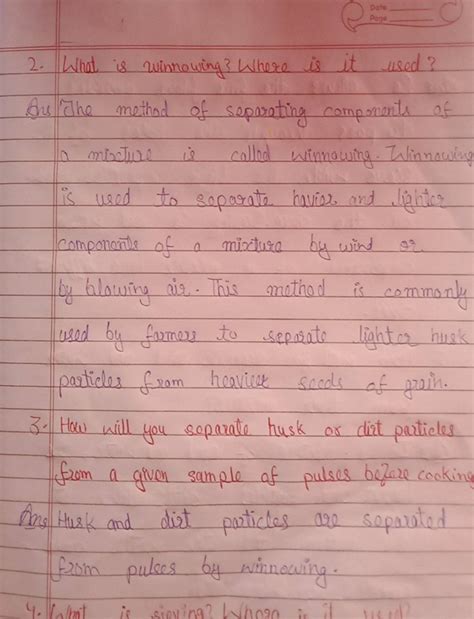 Date
Page
2. What is winnowing? Where is it used?
Ans The method of separating components of
a mixture is called winnowing. Winnowing
is used to separate havier and lighter
components of a mixture by wind or
by blowing air. This method is commonly
used by farmers to separate lighter husk
particles from heavier seeds of grain.
3. How will you separate husk or dirt particles
from a given sample of pulses before cooking
Ans Husk and dirt particles are separated
from pulses by winnowing.
4. What is sieving? Where is it used?